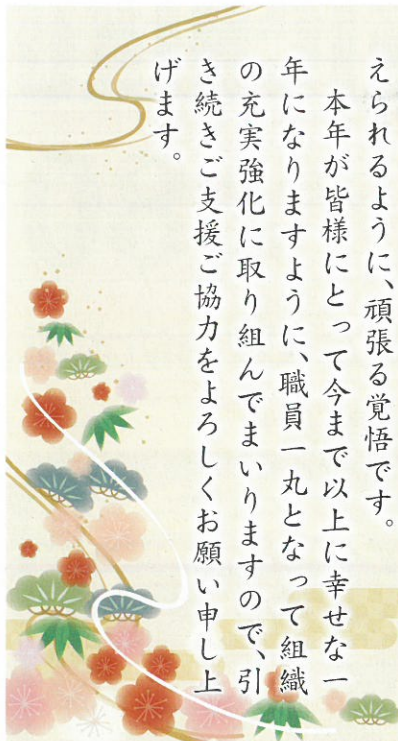 えられるように、頑張る覚悟です。
　本年が皆様にとって今まで以上に幸せな一
年になりますように、職員一丸となって組織
の充実強化に取り組んでまいりますので、引
き続きご支援ご協力をよろしくお願い申し上
げます。